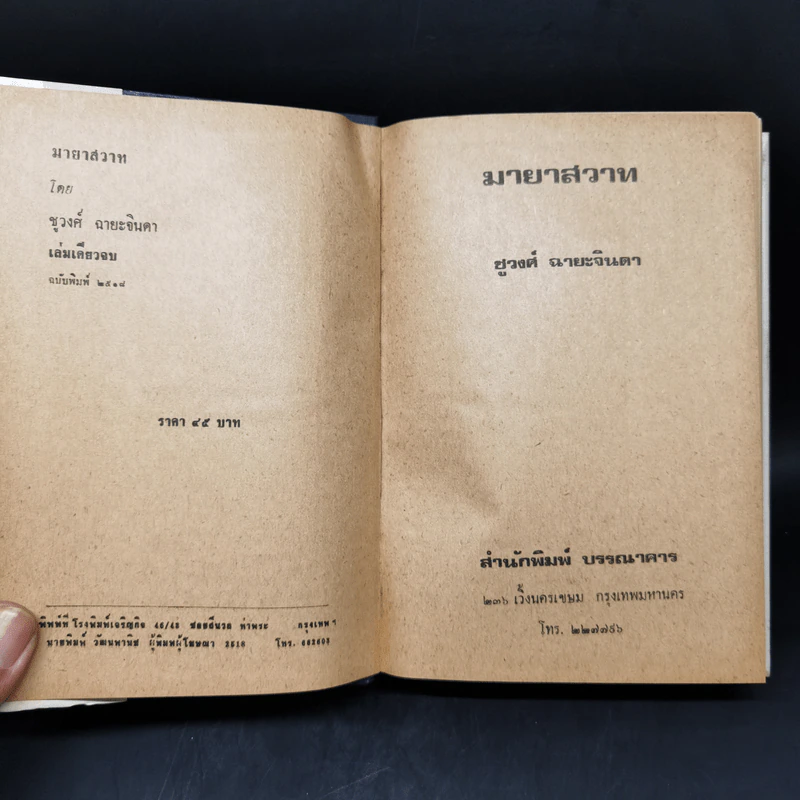 มายาสวาท
โดย
ชูวงศ์ ฉายะจินดา
เล่มเดียวจบ
ฉบับพิมพ์ ๒๕๑๘
ราคา ๔๕ บาท
พิมพ์ที่ โรงพิมพ์เจริญกิจ 46/43 ซอยอืนรถ ท่าพระ กรุงเทพ ฯ
นายพิมพ์ วัฒนพานิช ผู้พิมพ์ผู้โฆษณา 2518 โทร. 662603
มายาสวาท
ชูวงศ์ ฉายะจินดา
สำนักพิมพ์ บรรณาคาร
๒๓๖ เวิ้งนครเขษม กรุงเทพมหานคร
โทร. ๒๒๗๗๙๖